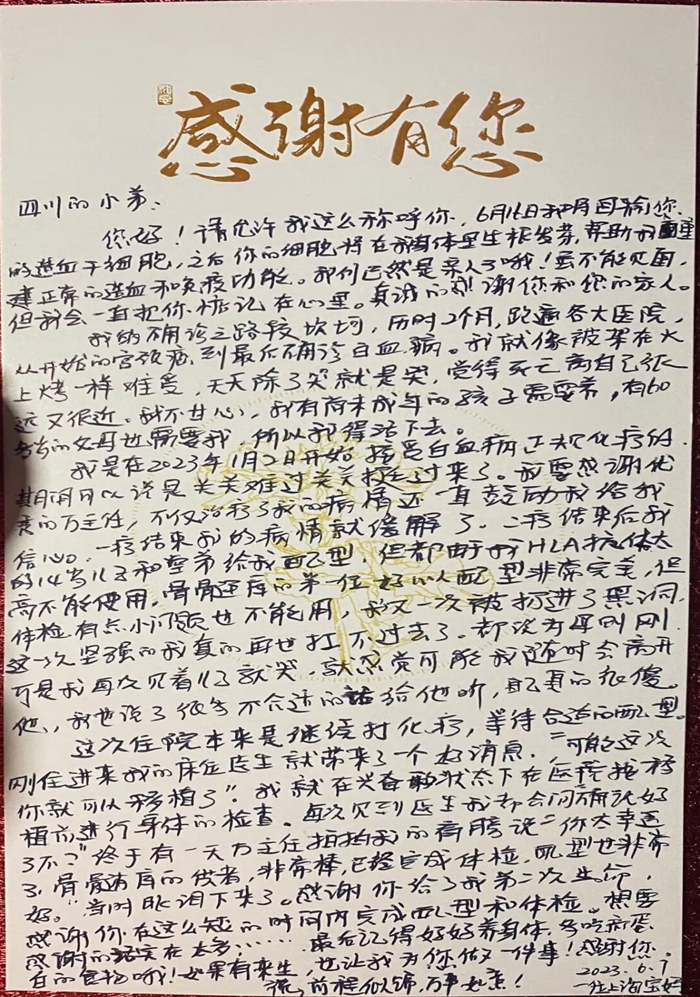 感谢有您
四川的小弟：
您好！请允许我这么称呼你，6月16日我将回输您
的造血干细胞，之后你的细胞将在我身体里生根发芽，帮助我重
建正常的造血和免疫功能。我们已然是亲人了哦！虽不能见面，
但我会一直把你惦记在心里。真诚的感谢你和您的家人。
我的确诊之路较坎坷，历时2个月，跑遍各大医院，
从开始的宫颈癌到最后确诊白血病。我就像被架在火
上烤一样难受，天天除了哭就是哭，觉得死亡离自己很
远又很近。我不甘心，我有尚未成年的孩子需要养，有60
多岁的父母也需要我，所以我得活下去。
我是在2023年1月2日开始接受白血病正规化疗的
期间可以说是关关难过关关挺过来了。我要感谢优
秀的方主任，不仅治疗了我的病情还一直鼓励我给我
信心。一疗结束我的病情就缓解了，二疗结束后我
的14岁儿子和堂弟给我配型，但都由于我HLA抗体太
高不能使用。骨髓库的第一位好心人配型非常完美，但
体检有点小问题也不能用，我又一次被扔进了黑洞，
这一次坚强的我真的再也扛不过去了。都说为母则刚
可是我每次见着儿子就哭，就感觉可能我随时会离开
他，我也说了很多不合适的话给他听，自己真的很傻。
这次住院本来是继续打化疗，等待合适的配型。
刚住进来我的床位医生就带来了一个好消息，“可能这次
你就可以移植了”。我就在兴奋的状态下在医院按移
植前进行身体的检查。每次见到医生我都会问确认好
了不？”终于有一天方主任拍拍我的肩膀说“你太幸运
了，骨髓库的供者，非常棒，已经完成体检，配型也非常
好。”当时眼泪下来了。感谢你给了我第二次生命，
感谢你在这么短的时间内完成配型和体检。想要
感谢的话实在太多……最后记得好好养身体，多吃高蛋
白的食物哦！如果有来生，也让我为您做一件事！感谢您。
祝，前程似锦，万事如意！
2023.6.9
一位上海宝妈